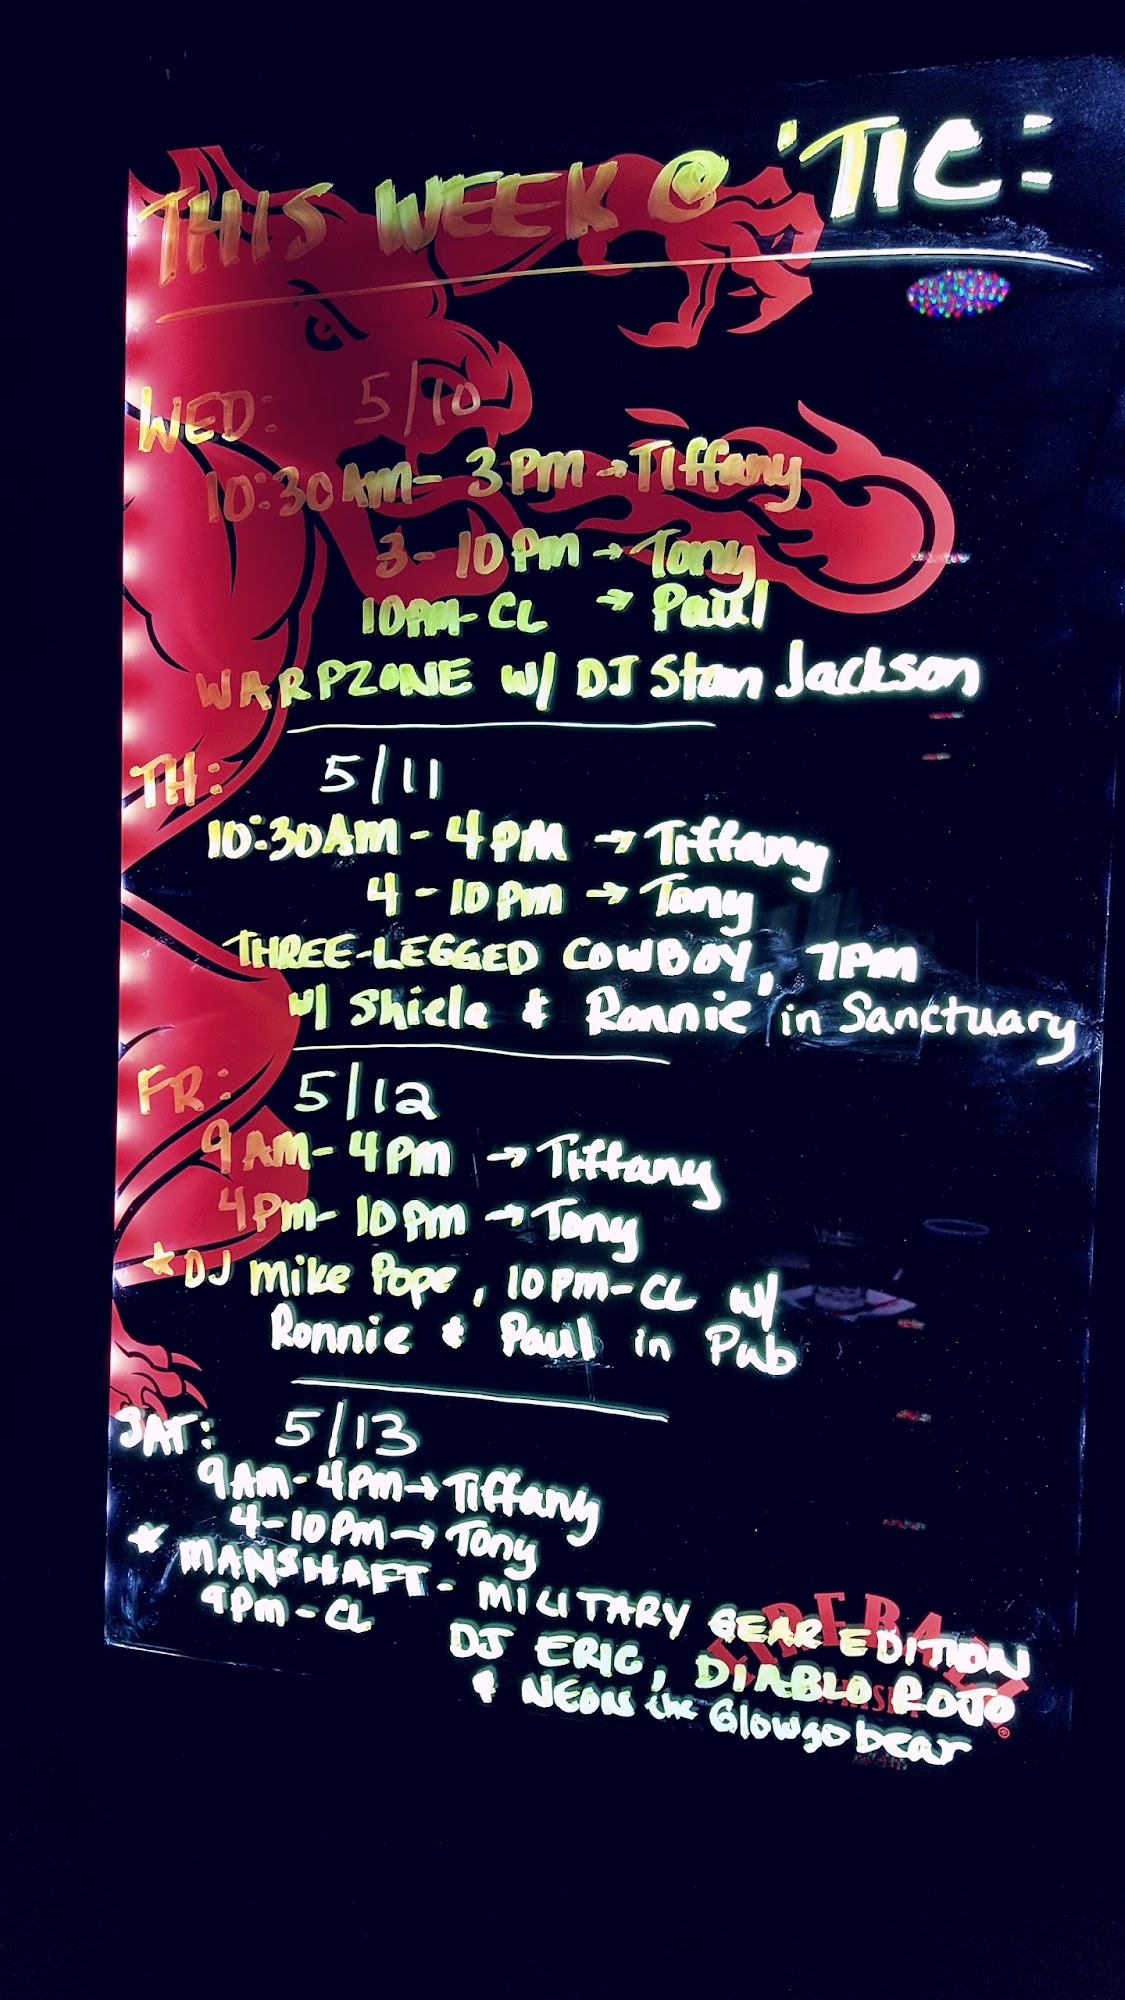 THIS WEEK @ 'TIC:
WED: 5/10
10:30AM - 3PM → Tiffany
3 - 10PM → Tony
10PM - CL → Paul
WARPZONE w/ DJ Stan Jackson
TH: 5/11
10:30AM - 4PM → Tiffany
4 - 10PM → Tony
THREE-LEGGED COWBOY, 7PM
w/ Shiela & Ronnie in Sanctuary
FR: 5/12
9AM - 4PM → Tiffany
4PM - 10PM → Tony
* DJ Mike Pope, 10PM-CL w/
Ronnie & Paul in Pub
SAT: 5/13
9AM - 4PM → Tiffany
4-10PM → Tony
* MANSHAFT - MILITARY GEAR EDITION
9PM - CL DJ ERIC, DIABLO ROJO
& NEON the Glowgobear
FIREBALL
®